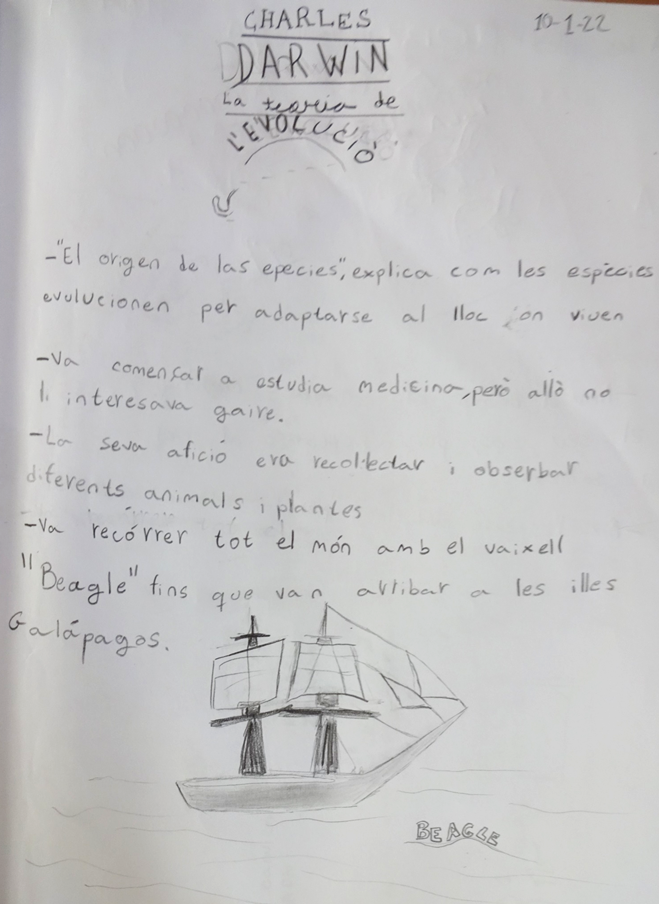 CHARLES
10-1-22
DARWIN
La teoria de
L'EVOLUCIÓ
-"El origen de las epecies", explica com les espècies
evulucionen per adaptarse al lloc on viuen
-Va començar a estudia medicina, però allò no
li interesava gaire.
-La seva afició era recol·lectar i obserbar
diferents animals i plantes
-Va recórrer tot el món amb el vaixell
"Beagle" fins que van arribar a les illes
Galápagos.
BEAGLE